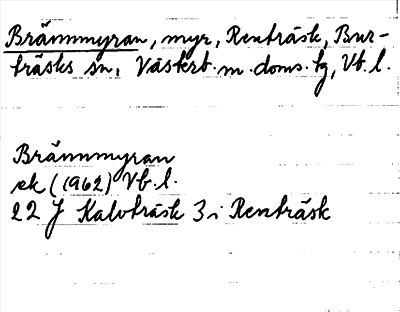 Brännmyran, myr, Renträsk, Bur-
träsks sn, Västerb. m. doms. tg, Vb. l.
Brännmyran
ek (1962) Vb. l.
22 J Kalvträsk 3 i Renträsk